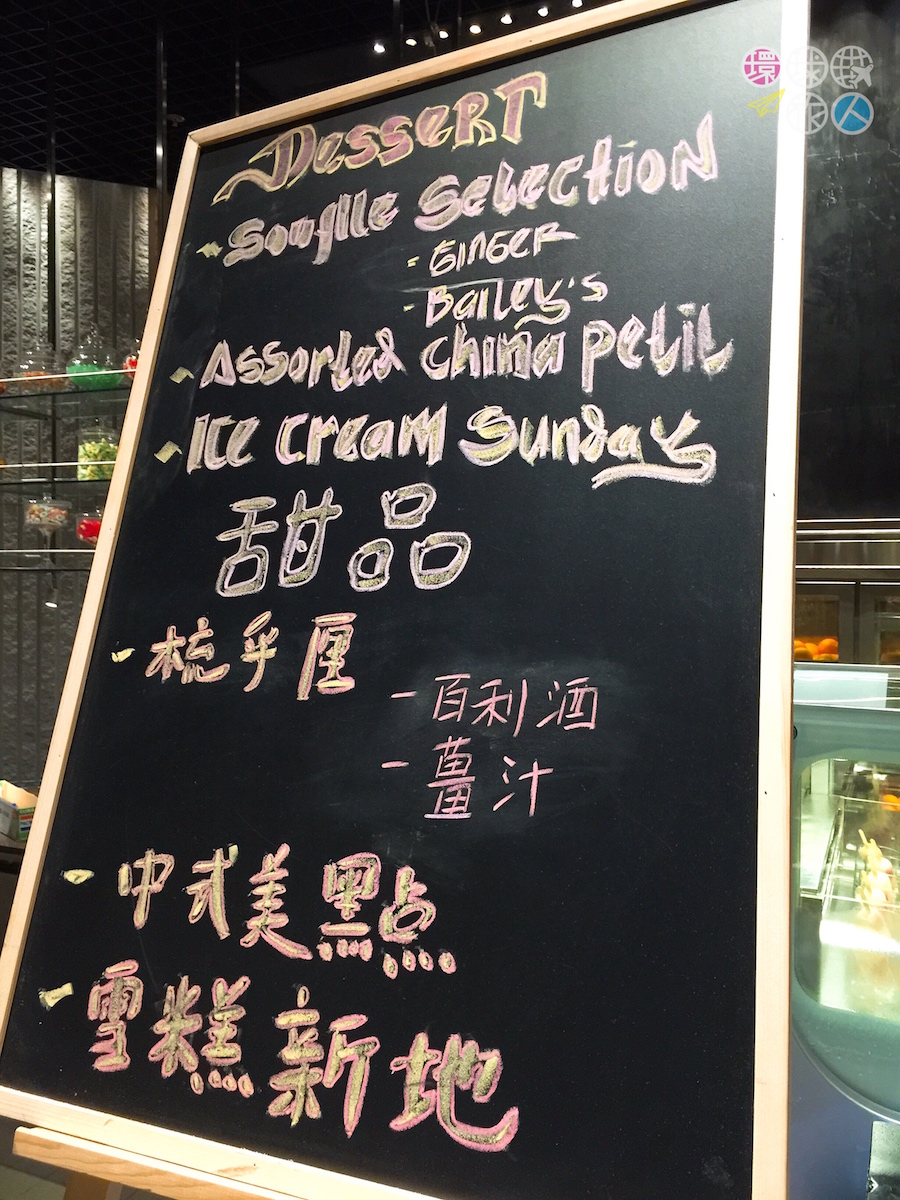 環球
旅人
Dessert
- Souflle Selection
- Ginger
- Bailey's
- Assorted China Petit
- Ice Cream Sunday
甜品
- 梳乎厘
- 百利酒
- 薑汁
- 中式美點
- 雪糕新地